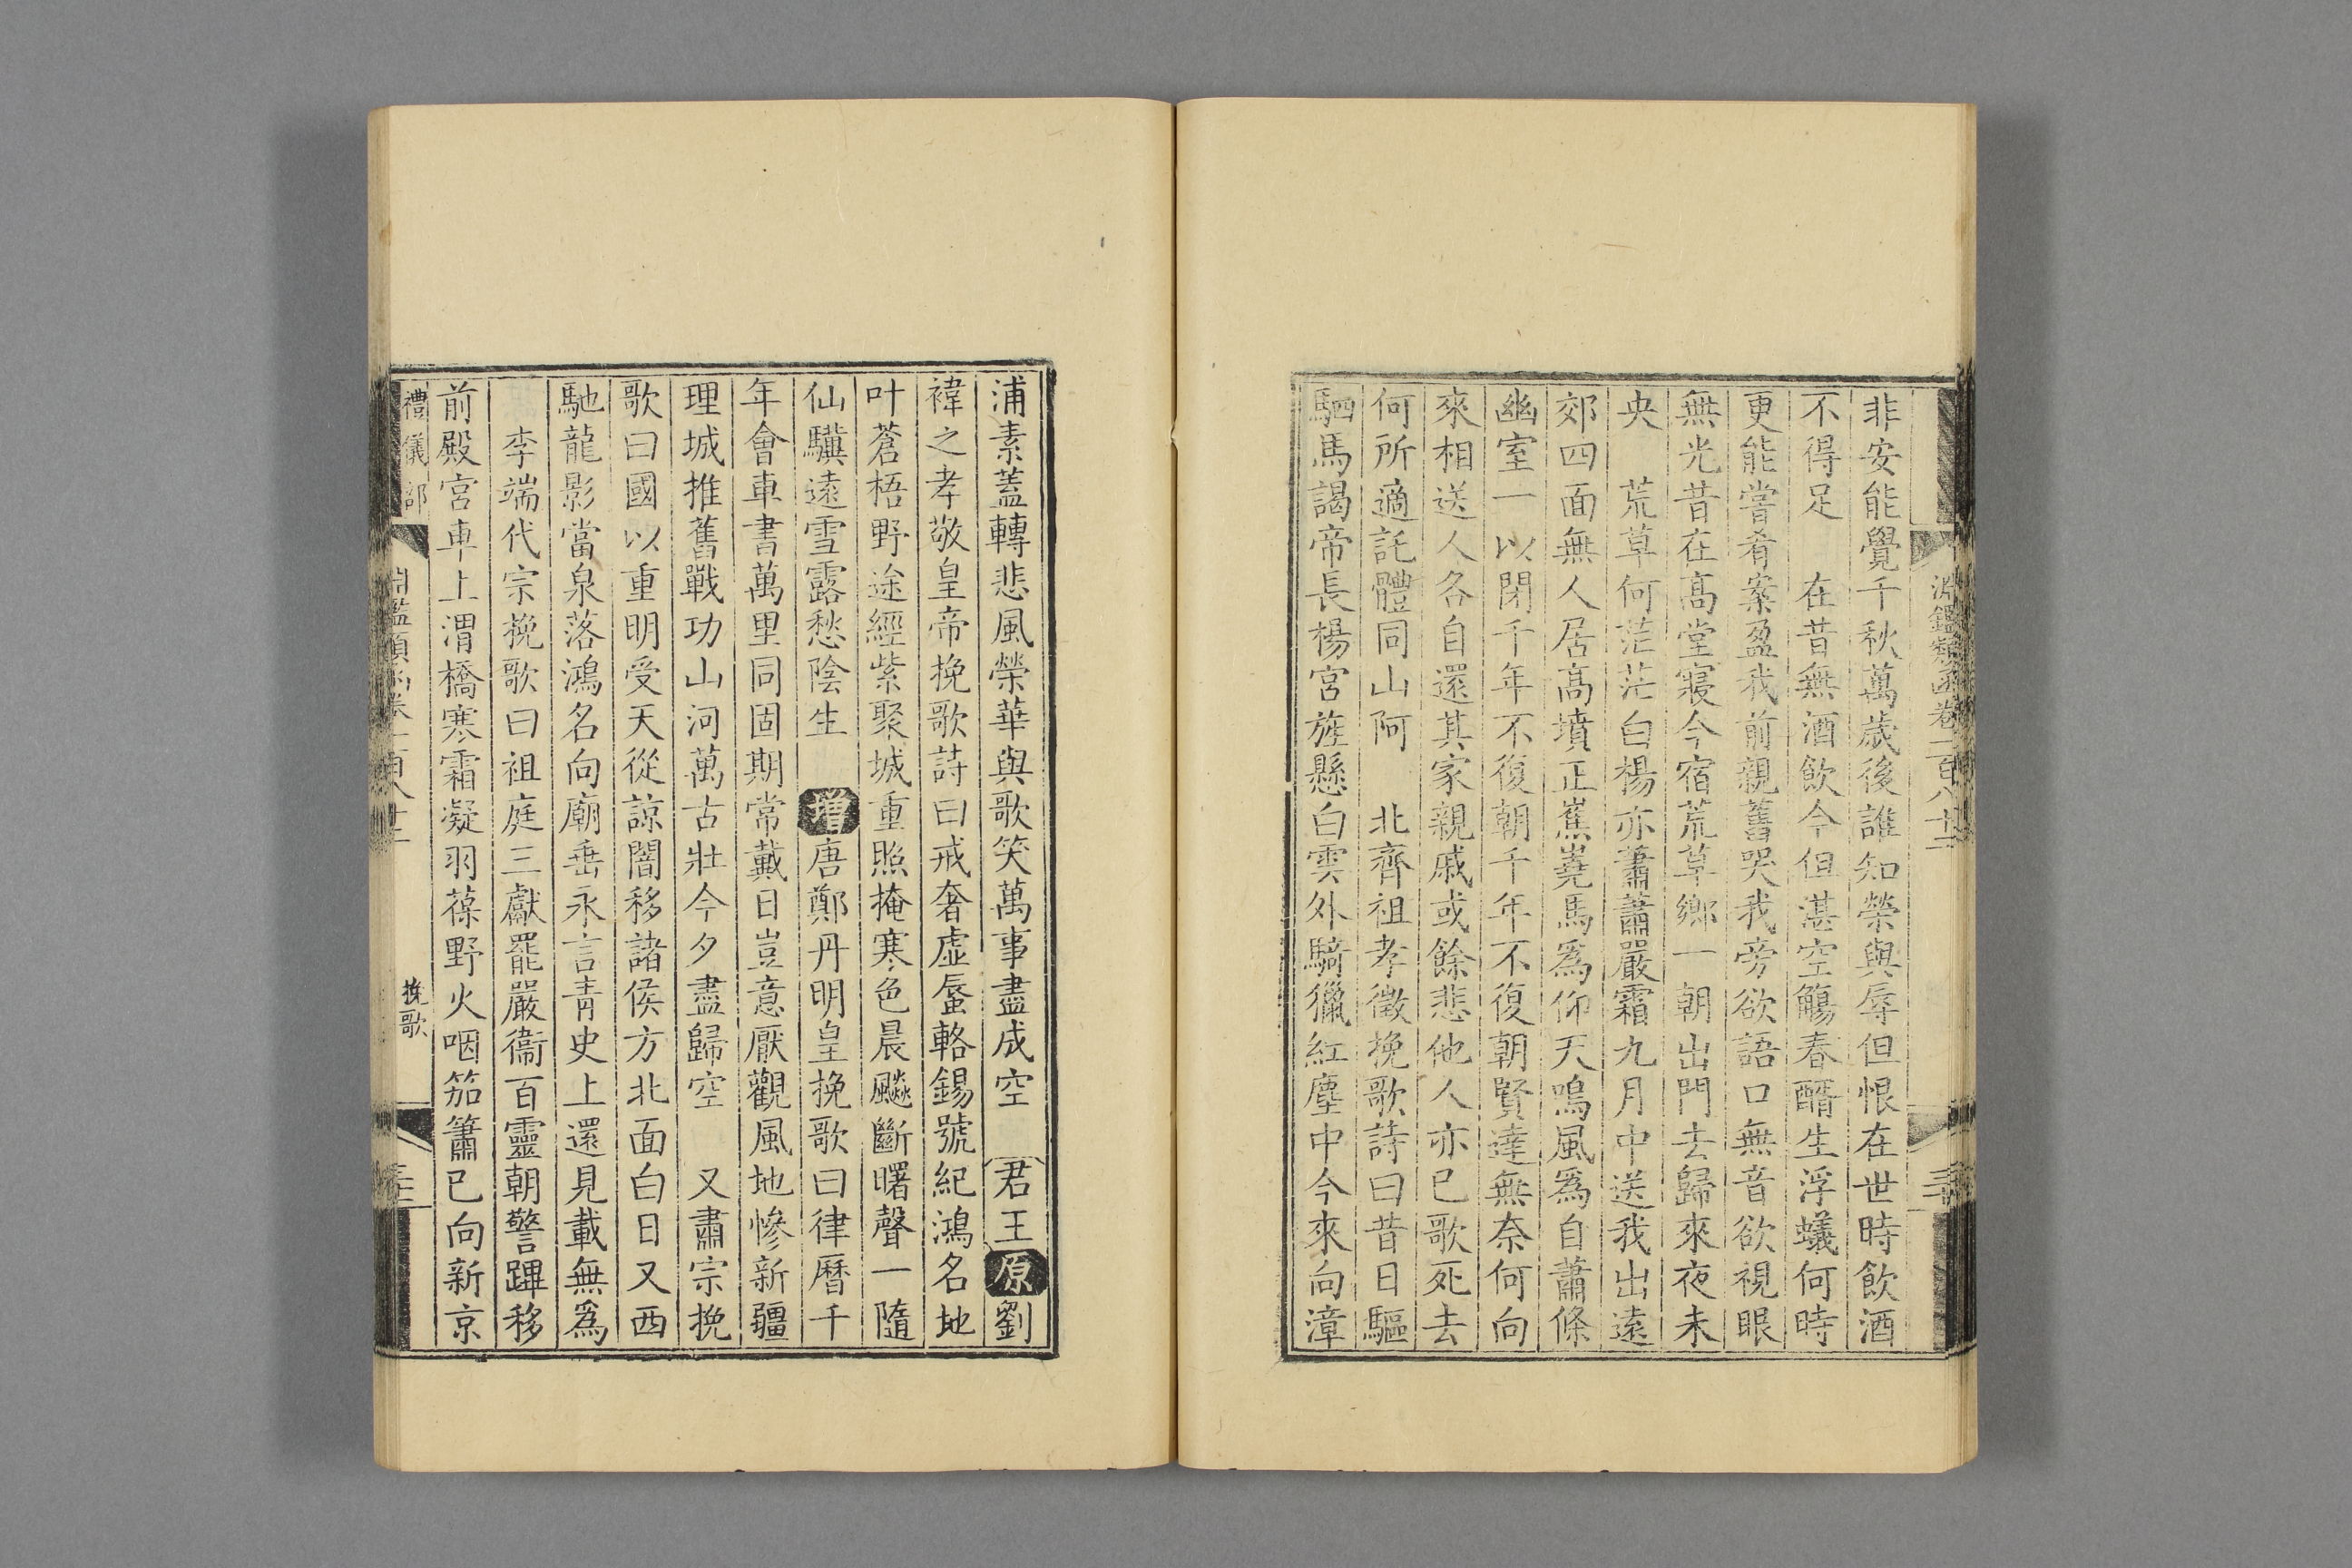 淵鑑類函卷一百八十二
非安能覺千秋萬歲後誰知榮與辱但恨在世時飲酒
不得足　在昔無酒飲今但湛空觴春醑生浮蟻何時
更能嘗肴案盈我前親舊哭我旁欲語口無音欲視眼
無光昔在高堂寢今宿荒草鄉一朝出門去歸來夜未
央　荒草何茫茫白楊亦蕭蕭嚴霜九月中送我出遠
郊四面無人居高墳正嶣嶤馬為仰天鳴風為自蕭條
幽室一以閉千年不復朝千年不復朝賢達無奈何向
來相送人各自還其家親戚或餘悲他人亦已歌死去
何所適託體同山阿　北齊祖孝徵挽歌詩曰昔日驅
駟馬謁帝長楊宮旌懸白雲外騎獵紅塵中今來向漳
浦素蓋轉悲風榮華與歌笑萬事盡成空　君王原劉
褘之孝敬皇帝挽歌詩曰戒奢虛蜃輅錫號紀鴻名地
叶蒼梧野途經紫聚城重照掩寒色晨飈斷曙聲一隨
仙驥遠雪露愁陰生　增唐鄭丹明皇挽歌曰律曆千
年會車書萬里同固期常戴日豈意厭觀風地慘新疆
理城推舊戰功山河萬古壯今夕盡歸空　又肅宗挽
歌曰國以重明受天從諒闇移諸侯方北面白日又西
馳龍影當泉落鴻名向廟垂永言青史上還見載無為
李端代宗挽歌曰祖庭三獻罷嚴衞百靈朝警蹕移
前殿宮車上渭橋寒霜凝羽葆野火咽笳簫已向新京
禮儀部
挽歌